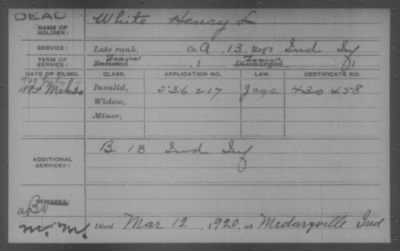 DEAD
NAME OF SOLDIER: White Henry L
SERVICE: Late rank, Co. A, 13 Reg't Ind Inf
TERM OF SERVICE: Enrolled , 1 Discharged , 1
DATE OF FILING. CLASS. APPLICATION NO. LAW. CERTIFICATE NO.
1894 Mch 30 Invalid, 536 217 430 458
Widow,
Minor,
ADDITIONAL SERVICES: B 18 Ind Inf
REMARKS:
Died Mar 12, 1920, at Medaryville Ind